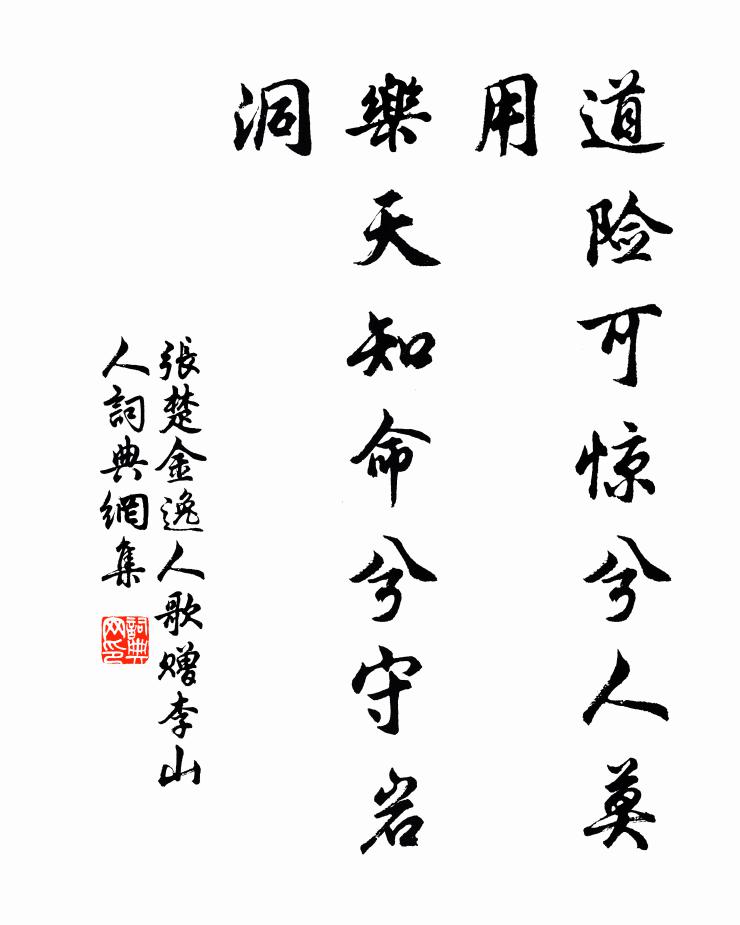 道险可惊兮人莫
用
樂天知命兮守岩
洞
張楚金逸人歌赠李山
人詞典網集
詞典
网印